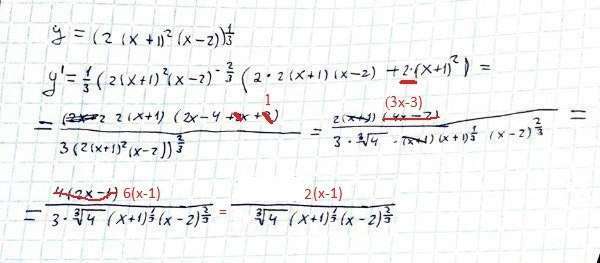 y = (2(x+1)²(x-2))^{1/3}
y' = 1/3 (2(x+1)²(x-2)^{-2/3} (2·2(x+1)(x-2) + 2·(x+1)²) =
= 2(x+1)(2x-4+x+1) / 3(2(x+1)²(x-2))^{2/3} = 2(x+1)(4x-2) (3x-3) / 3·∛4·(x+1)(x+1)^{1/3}(x-2)^{2/3} =
= 4(2x-1) 6(x-1) / 3·∛4 (x+1)^{1/3}(x-2)^{2/3} = 2(x-1) / ∛4 (x+1)^{1/3}(x-2)^{2/3}